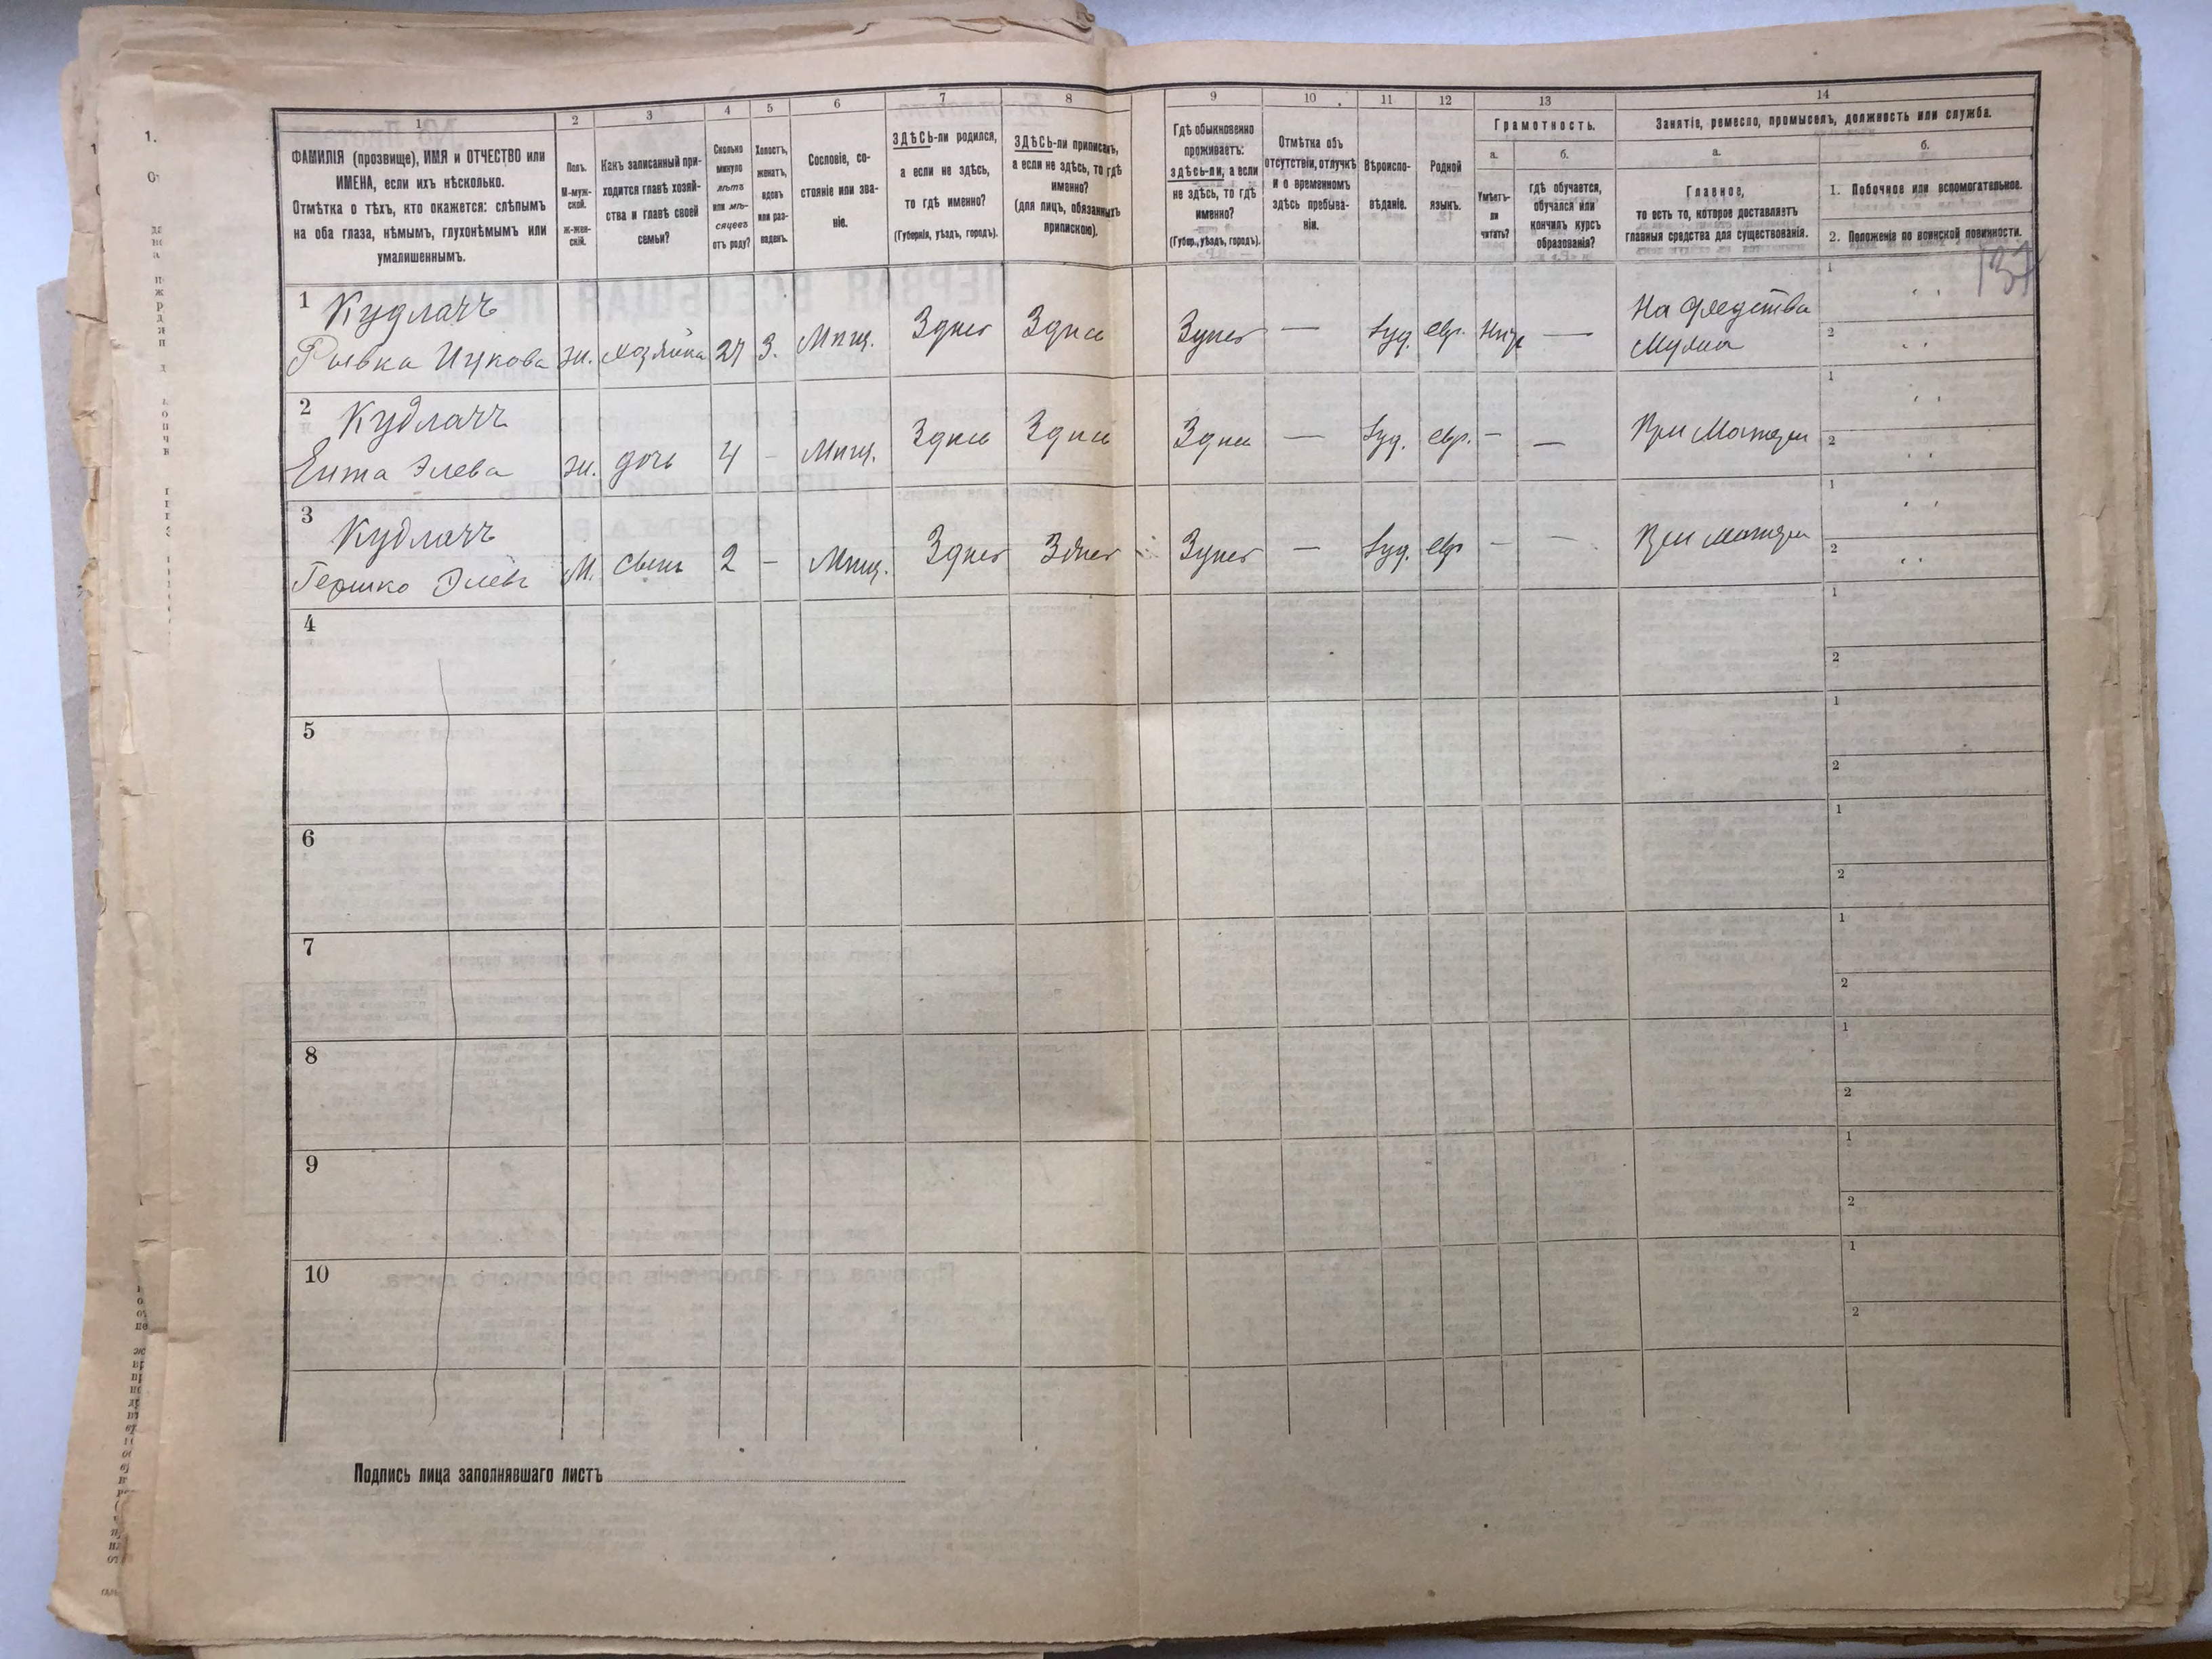 1
2
3
4
5
6
7
8
9
10
11
12
13
14
ФАМИЛІЯ (прозвище), ИМЯ и ОТЧЕСТВО или
ИМЕНА, если ихъ нѣсколько.
Отмѣтка о тѣхъ, кто окажется: слѣпымъ
на оба глаза, нѣмымъ, глухонѣмымъ или
умалишеннымъ.
Полъ.
М-муж-
ской.
Ж-жен-
скій.
Какъ записанный при-
ходится главѣ хозяй-
ства и главѣ своей
семьи?
Сколько
минуло
лѣтъ
или мѣ-
сяцевъ
отъ роду?
Холостъ,
женатъ,
вдовъ
или раз-
веденъ.
Сословіе, со-
стояніе или зва-
ніе.
ЗДѢСЬ-ли родился,
а если не здѣсь,
то гдѣ именно?
(Губернія, уѣздъ, городъ).
ЗДѢСЬ-ли приписанъ,
а если не здѣсь, то гдѣ
именно?
(для лицъ, обязанныхъ
припискою).
Гдѣ обыкновенно
проживаетъ:
здѣсь-ли, а если
не здѣсь, то гдѣ
именно?
(Губер., уѣздъ, городъ).
Отмѣтка объ
отсутствіи, отлучкѣ
и о временномъ
здѣсь пребыва-
ніи.
Вѣроиспо-
вѣданіе.
Родной
языкъ.
Грамотность.
а.
б.
Умѣетъ-
ли
читать?
гдѣ обучается,
обучался или
кончилъ курсъ
образованія?
Занятіе, ремесло, промыселъ, должность или служба.
а.
б.
Главное,
то есть то, которое доставляетъ
главныя средства для существованія.
1. Побочное или вспомогательное.
2. Положеніе по воинской повинности.
137
1 Кудлачъ
Рывка Ицкова ж. хозяйка 27 З. Мѣщ. Здѣсь Здѣсь Здѣсь — Іуд. евр. Нѣтъ — На средства
Мужа
1
2
2 Кудлачъ
Ента Элева ж. дочь 4 - Мѣщ. Здѣсь Здѣсь Здѣсь — Іуд. евр. - — При Матери
1
2
3 Кудлачъ
Гершко Элевъ М. сынъ 2 - Мѣщ. Здѣсь Здѣсь Здѣсь — Іуд. евр - - При матери
1
2
4
1
2
5
1
2
6
1
2
7
1
2
8
1
2
9
1
2
10
1
2
Подпись лица заполнявшаго листъ